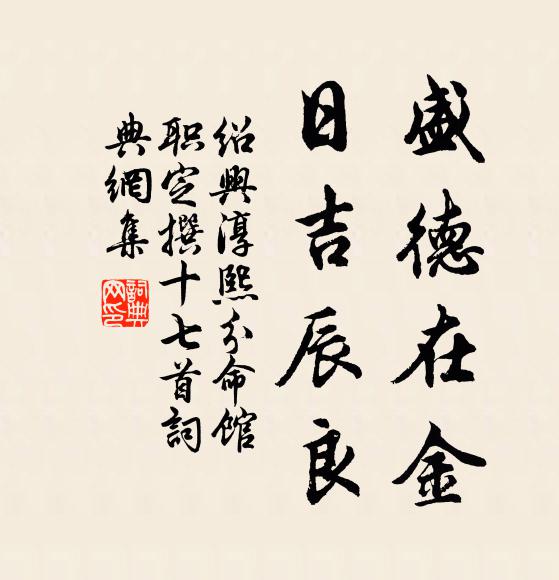 盛德在金
日吉辰良
绍興淳熙分命馆
职定撰十七首詞
典網集
詞典网印